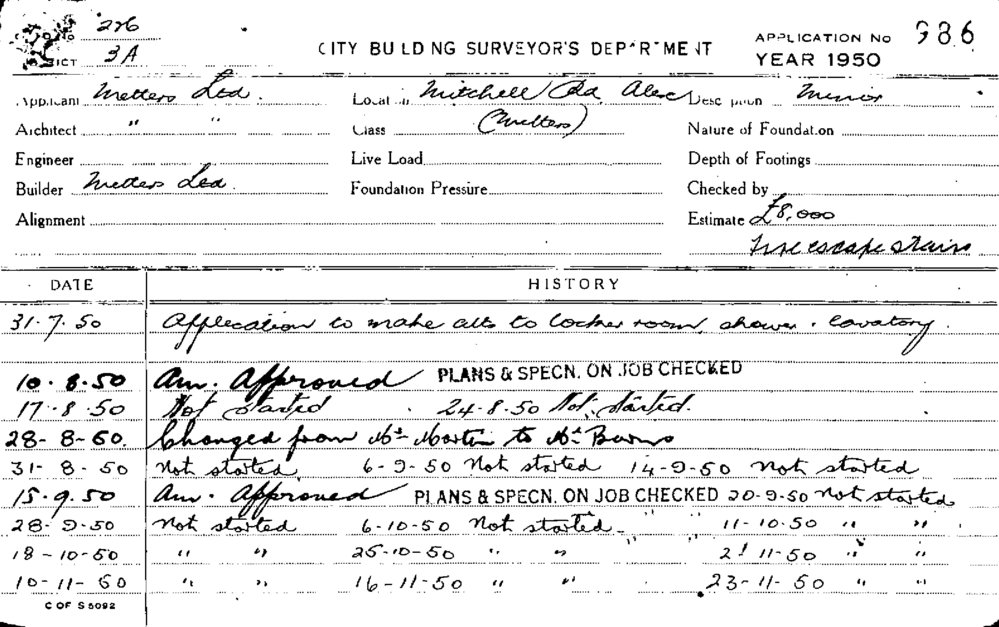 276
3A
CITY BUILDING SURVEYOR'S DEPARTMENT
APPLICATION No 986
YEAR 1950
Applicant Metters Ltd. Location Mitchell Rd Alex Description Minor
Architect " " Class (Metters) Nature of Foundation
Engineer Live Load Depth of Footings
Builder Metters Ltd. Foundation Pressure Checked by
Alignment Estimate £8,000
Fire escape stairs
DATE HISTORY
31.7.50 Application to make alts to locker room, shower . lavatory.
10.8.50 Am. Approved PLANS & SPECN. ON JOB CHECKED
17.8.50 Not started 24-8.50 Not started.
28-8-50. Changed from Mr Martin to Mr Burns
31-8-50 Not started 6-9-50 Not started 14-9-50 Not started
15.9.50 Am. Approved PLANS & SPECN. ON JOB CHECKED 20-9-50 Not started
28-9-50 Not started 6-10-50 Not started - " " 11-10.50 " "
18-10-50 " " 25-10-50 " " " " 2 11-50 " "
10-11-50 " " 16-11-50 " " 23-11-50 " "
C OF S 5092